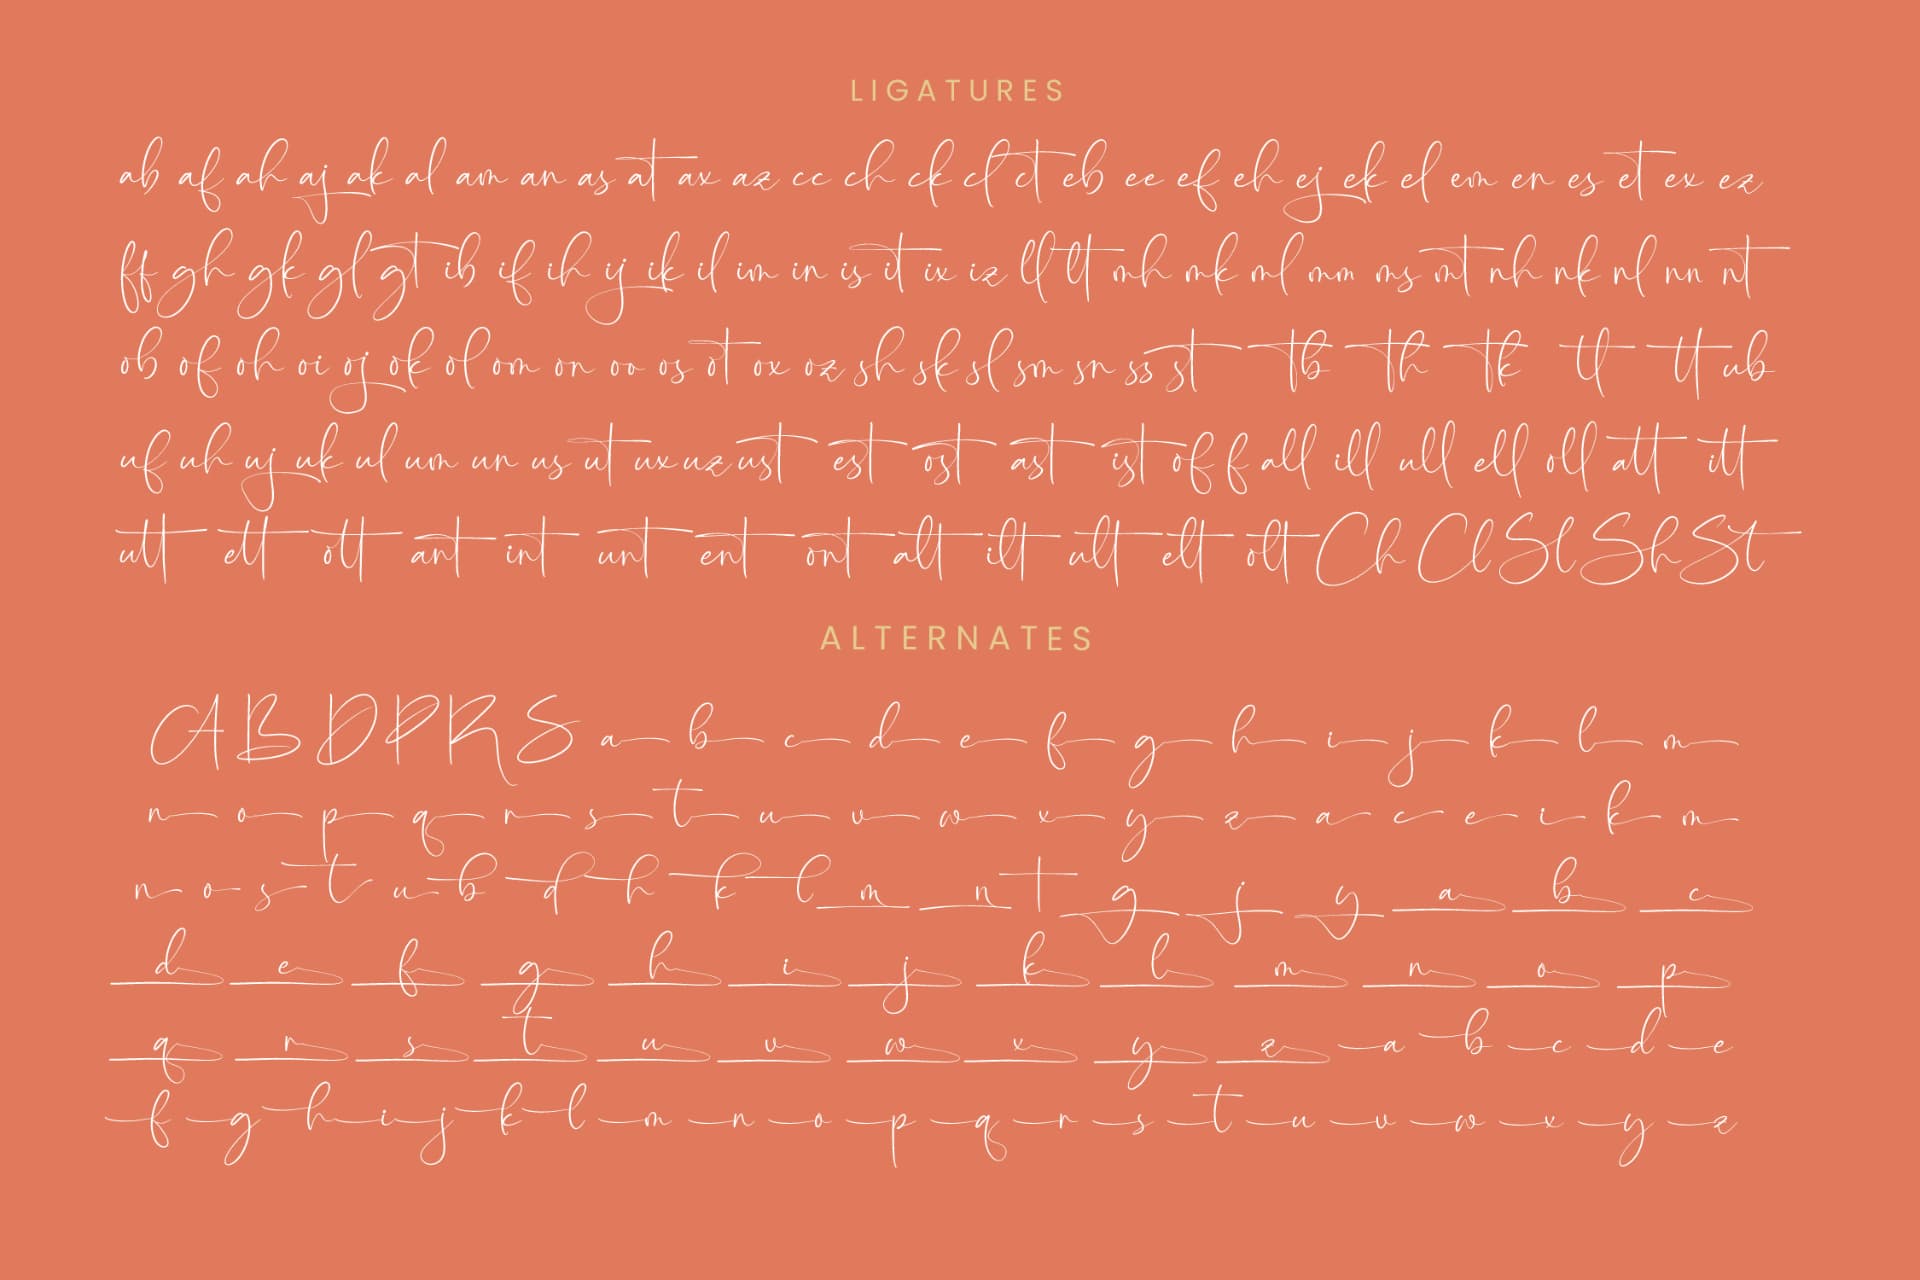 LIGATURES
ab af ah aj ak al am an as at ax az cc ch ck cl ct eb ee ef eh ej ek el em en es et ex ez
ff gh gk gl gt ib if ih ij ik il im in is it ix iz ll lt mh mk ml mm ms mt nh nk nl nn nt
ob of oh oi oj ok ol om on oo os ot ox oz sh sk sl sm sn ss st tb th tk tl tt ub
uf uh uj uk ul um un us ut ux uz ust est ost ast ist of f all ill ull ell oll att itt
utt ett ott ant int unt ent ont alt ilt ult elt olt Ch Cl Sl Sh St
ALTERNATES
A B D P R S a b c d e f g h i j k l m
n o p q r s t u v w x y z a c e i k m
n o s t u b d h k l m n t g j y a b c
d e f g h i j k l m n o p
q r s t u v w x y z a b c d e
f g h i j k l m n o p q r s t u v w x y z